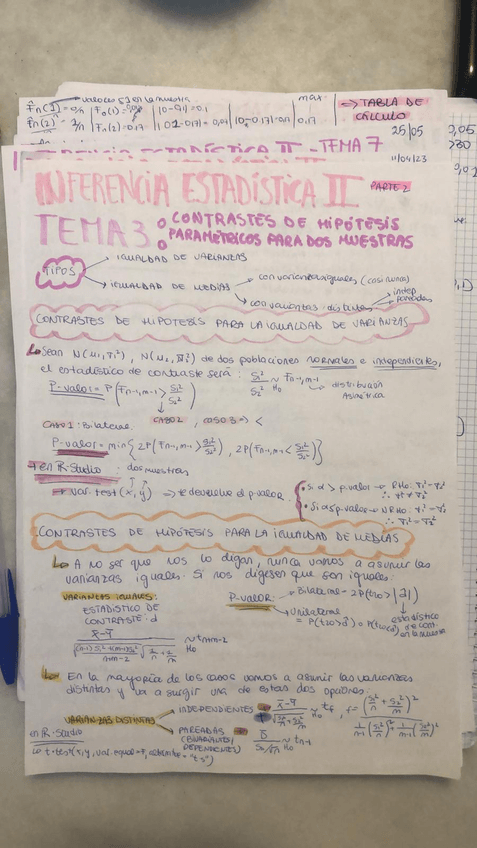 valores ≤1 en la muestra
F̂n(1) = 0/n | Fo(1) = | |0-0'1| = 0.1 | | max
F̂n(2) = 1/n | Fo(2) = 0.17 | |0'1-0'17| = 0,07 | |0-0'17| = 0.17 | 0.17
→ TABLA DE
CÁLCULO
25/05
INFERENCIA ESTADÍSTICA II - TEMA 7
11/04/23
INFERENCIA ESTADÍSTICA II PARTE 2
TEMA 3: CONTRASTES DE HIPÓTESIS
PARAMÉTRICOS PARA DOS MUESTRAS
TIPOS
IGUALDAD DE VARIANZAS
IGUALDAD DE MEDIAS
con varianzas iguales (casi nunca)
con varianzas distintas
indep
pareadas
CONTRASTES DE HIPÓTESIS PARA LA IGUALDAD DE VARIANZAS
Sean N(μ1, σ1²), N(μ2, σ2²) de dos poblaciones normales e independientes,
el estadístico de contraste será: S1²/S2² ~ Fn-1, m-1
Ho
→ distribución
Asimétrica
P-valor = P(Fn-1, m-1 > S1²/S2²)
CASO 1: Bilateral CASO 2, CASO 3 => <
P-valor = min{2P(Fn-1, m-1 > S1²/S2²), 2P(Fn-1, m-1 < S1²/S2²)}
→ en R-Studio: dos muestras
→ var.test(x, y) → te devuelve el p valor
Si α > p-valor → RHo: σ1² = σ2²
∴ σ1² ≠ σ2²
Si α ≤ p-valor → NRHo: σ1² = σ2²
∴ σ1² = σ2²
CONTRASTES DE HIPÓTESIS PARA LA IGUALDAD DE MEDIAS
A no ser que nos lo digan, nunca vamos a asumir las
varianzas iguales. Si nos dijesen que son iguales:
VARIANZAS IGUALES:
ESTADÍSTICO DE
CONTRASTE: d
x̄-ȳ / √((n-1)S1²+(m-1)S2² / n+m-2) √(1/n + 1/m) ~ tn+m-2
Ho
P-VALOR: Bilateral = 2P(t>0 > |d|)
Unilateral
estadístico
de cont
en la muestra
En la mayoría de los casos vamos a asumir las varianzas
distintas y va a surgir una de estas dos opciones:
VARIANZAS DISTINTAS
INDEPENDIENTES → x̄-ȳ / √(S1²/n + S2²/m) ~ tf, f = (S1²/n + S2²/m)² / (1/n-1 (S1²/n)² + 1/m-1 (S2²/m)²)
Ho
PAREADAS
(BIVARIANTES/
DEPENDIENTES)
D̄ / SD/√n ~ tn-1
Ho
en R-Studio
t.test(x, y, var.equal = F, alternative = "t s")